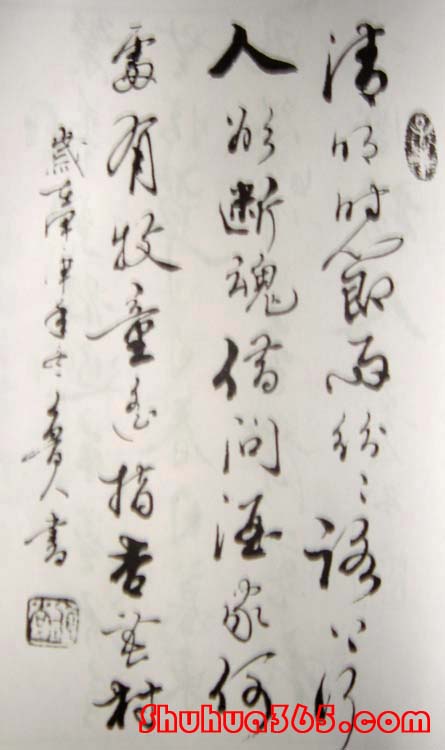 清明时節雨紛々路上行
人欲斷魂借问酒家何
處有牧童遥指杏花村
歲在年人書
Shuhua365.com